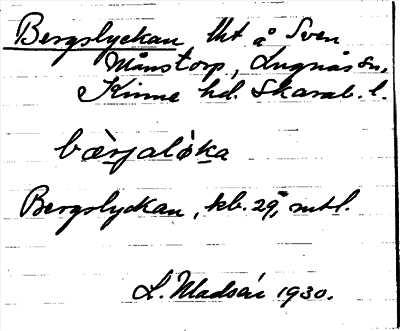 Bergslyckan lht å Sven
Månstorp, Lugnås sn,
Kinne hd. Skarab. l.
bæ̀rjalø̀ka
Bergslyckan, kb. 29, mtl.
L. Madsén 1930.